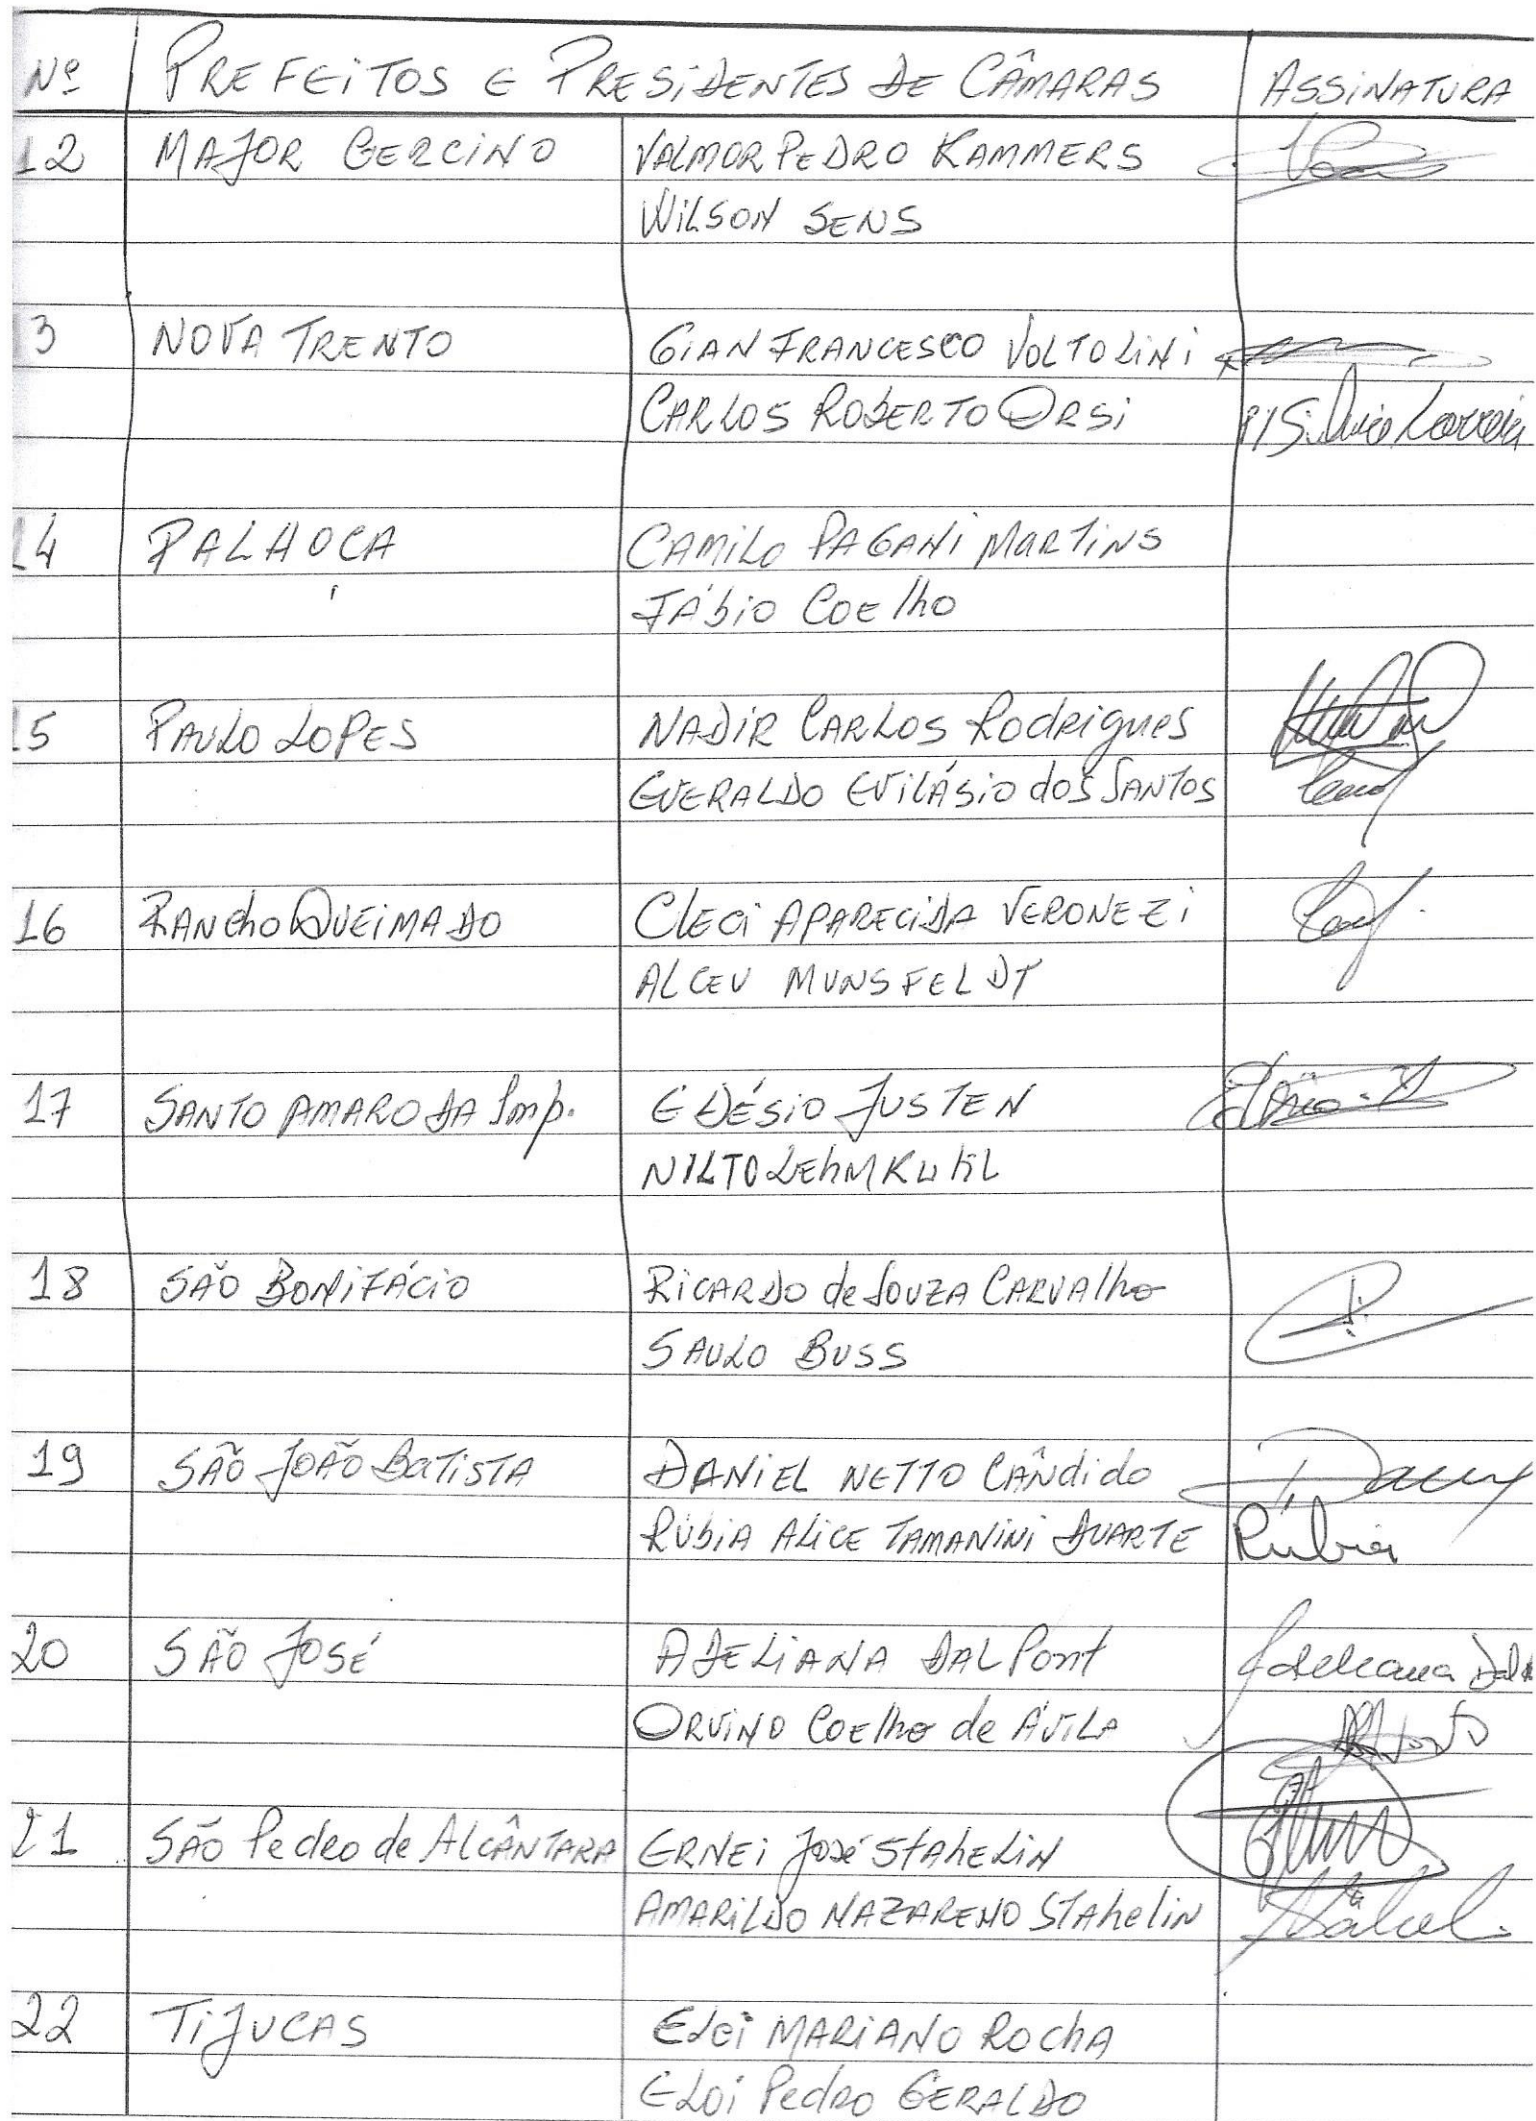 Nº PREFEITOS E PRESIDENTES DE CÂMARAS ASSINATURA
12 MAJOR GERCINO VALMOR PEDRO KAMMERS
WILSON SENS
13 NOVA TRENTO GIAN FRANCESCO VOLTOLINI
CARLOS ROBERTO ORSI P/ Silvio Correia
14 PALHOÇA CAMILO PAGANI MARTINS
FÁBIO COELHO
15 PAULO LOPES NADIR CARLOS RODRIGUES
GUERALDO EVILÁSIO DOS SANTOS
16 RANCHO QUEIMADO CLECI APARECIDA VERONEZI
ALCEU MUNSFELDT
17 SANTO AMARO DA IMP. EDÉSIO JUSTEN
NILTO LEHMKUHL
18 SÃO BONIFÁCIO RICARDO de SOUZA CARVALHO
SAULO BUSS
19 SÃO JOÃO BATISTA DANIEL NETTO CÂNDIDO
RÚBIA ALICE TAMANINI DUARTE Rúbia
20 SÃO JOSÉ ADELIANA DAL PONT Adeliana Dal
ORVINO COELHO de ÁVILA
21 SÃO PEDRO de ALCÂNTARA ERNEI JOSÉ STAHELIN
AMARILDO NAZARENO STAHELIN
22 TIJUCAS ELOI MARIANO ROCHA
ELOI PEDRO GERALDO